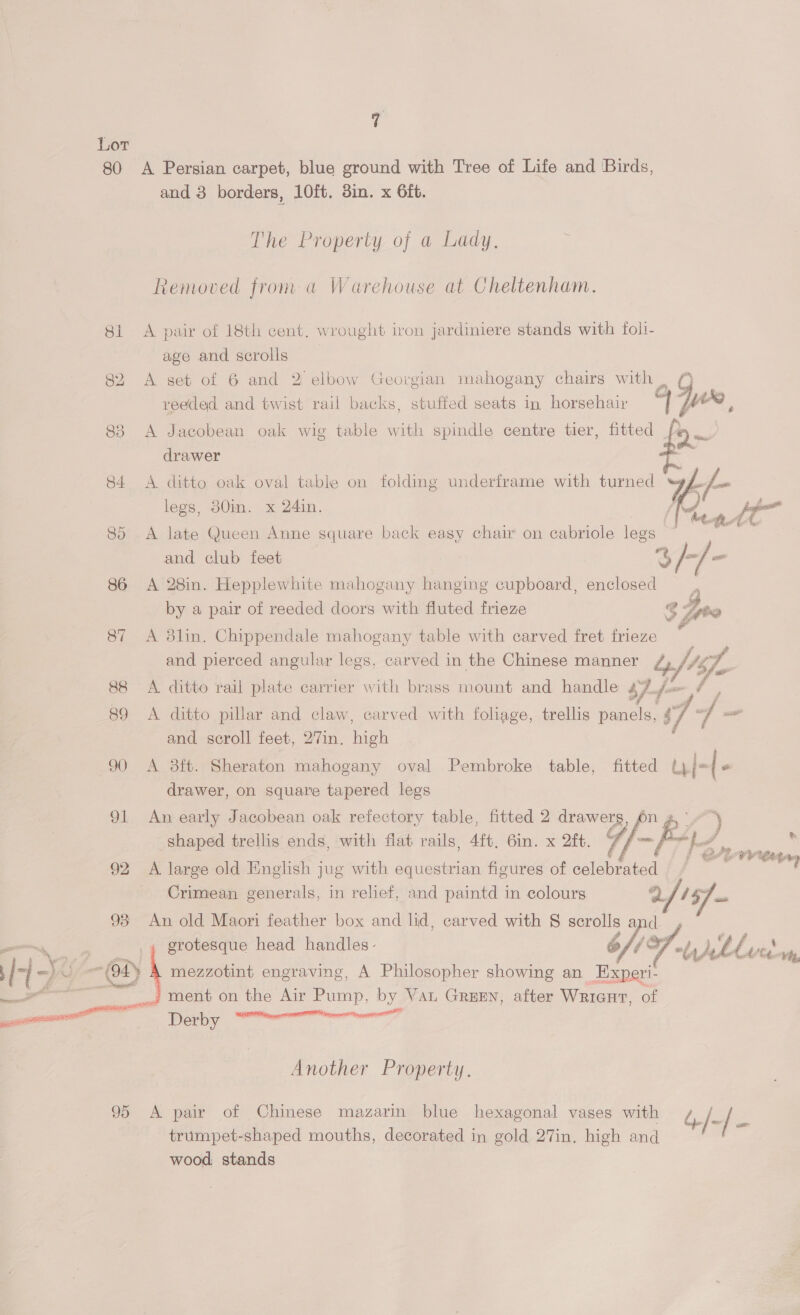 7
Lot
80 A Persian carpet, blue ground with Tree of Life and Birds,
and 3 borders, 10ft. 3in. x 6ft.
The Property of a Lady,
Removed from a Warehouse at Cheltenham.
81 A pair of 18th cent, wrought iron jardiniere stands with foli-
age and scrolls
82 A set of 6 and 2 elbow Georgian mahogany chairs with
reeded and twist rail backs, stuffed seats in horsehair
83 A Jacobean oak wig table with spindle centre tier, fitted
drawer
84 A ditto oak oval table on folding underframe with turned
legs, 30in. x 24in.
85 A late Queen Anne square back easy chair on cabriole legs
and club feet 3/-/-
86 A 28in. Hepplewhite mahogany hanging cupboard, enclosed
by a pair of reeded doors with fluted frieze
87 A 31in. Chippendale mahogany table with carved fret frieze
and pierced angular legs, carved in the Chinese manner
88 A ditto rail plate carrier with brass mount and handle
89 A ditto pillar and claw, carved with foliage, trellis panels,
and scroll feet, 27in. high
90 A 3ft. Sheraton mahogany oval Pembroke table, fitted
drawer, on square tapered legs
91 An early Jacobean oak refectory table, fitted 2 drawers, on
shaped trellis ends, with flat rails, 4ft. 6in. x 2ft.
92 A large old English jug with equestrian figures of celebrated
Crimean generals, in relief, and paintd in colours 2/15/-
93 An old Maori feather box and lid, carved with 8 scrolls and
grotesque head handles
94 A mezzotint engraving, A Philosopher showing an Experi-
ment on the Air Pump, by Val Green, after Wright, of
Derby
Another Property.
95 A pair of Chinese mazarin blue hexagonal vases with 4/-/-
trumpet-shaped mouths, decorated in gold 27in. high and
wood stands